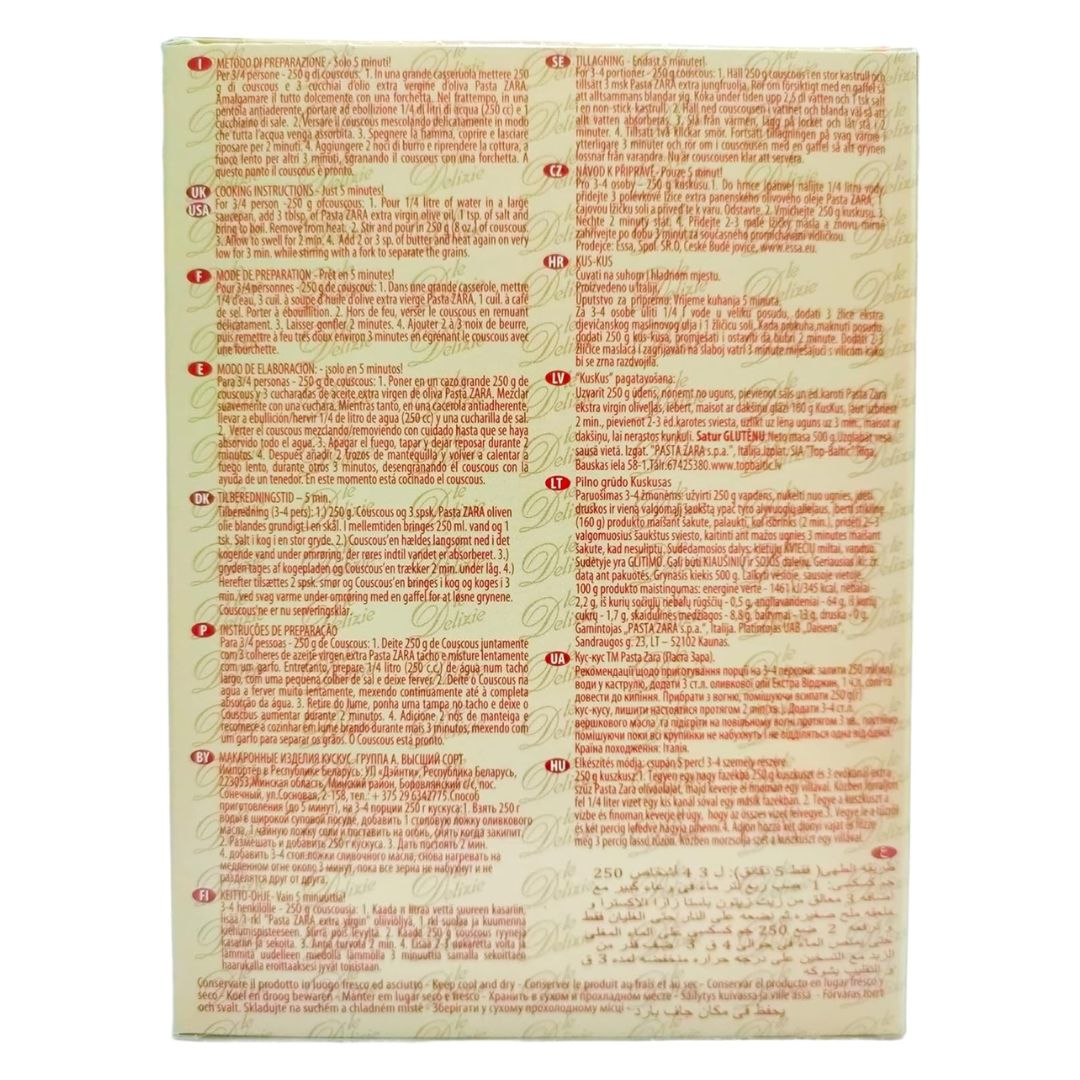 I METODO DI PREPARAZIONE - Solo 5 minuti!
Per 3/4 persone - 250 g di couscous: 1. In una grande casseruola mettere 250
g di couscous e 3 cucchiai d'olio extra vergine d'oliva Pasta ZARA.
Amalgamare il tutto dolcemente con una forchetta. Nel frattempo, in una
pentola antiaderente, portare ad ebollizione 1/4 di litri di acqua (250 cc) e 1
cucchiaino di sale. 2. Versare il couscous mescolando delicatamente in modo
che tutta l'acqua venga assorbita. 3. Spegnere la fiamma, coprire e lasciare
riposare per 2 minuti. 4. Aggiungere 2 noci di burro e riprendere la cottura, a
fuoco lento per altri 3 minuti, sgranando il couscous con una forchetta. A
questo punto il couscous è pronto.
UK USA COOKING INSTRUCTIONS - Just 5 minutes!
For 3/4 person -250 g ofcouscous: 1. Pour 1/4 litre of water in a large
saucepan, add 3 tblsp. of Pasta ZARA extra virgin olive oil, 1 tsp. of salt and
bring to boil. Remove from heat. 2. Stir and pour in 250 g (8 oz.) of couscous.
3. Allow to swell for 2 min. 4. Add 2 or 3 sp. of butter and heat again on very
low for 3 min. while stirring with a fork to separate the grains.
F MODE DE PREPARATION - Prêt en 5 minutes!
Pour 3/4 personnes - 250 g de couscous: 1. Dans une grande casserole, mettre
1/4 d'eau, 3 cuil. à soupe d'huile d'olive extra vierge Pasta ZARA, 1 cuil. à café
de sel. Porter à ébouillition. 2. Hors de feu, verser le couscous en remuant
délicatement. 3. Laisser gonfler 2 minutes. 4. Ajouter 2 à 3 noix de beurre,
puis remettre à feu très doux environ 3 minutes en égrenant le couscous avec
une fourchette.
E MODO DE ELABORACIÓN: - ¡solo en 5 minutos!
Para 3/4 personas - 250 g de couscous: 1. Poner en un cazo grande 250 g de
couscous y 3 cucharadas de aceite extra virgen de oliva Pasta ZARA. Mezclar
suavemente con una cuchara. Mientras tanto, en una cacerola antiadherente,
llevar a ebullición/hervir 1/4 de litro de agua (250 cc) y una cucharilla de sal.
2. Verter el couscous mezclando/removiendo con cuidado hasta que se haya
absorvido todo el agua. 3. Apagar el fuego, tapar y dejar reposar durante 2
minutos. 4. Después añadir 2 trozos de mantequilla y volver a calentar a
fuego lento, durante otros 3 minutos, desengranando el couscous con la
ayuda de un tenedor. En este momento está cocinado el couscous.
DK TILBEREDNINGSTID – 5 min.
Tilberedning (3-4 pers): 1.) 250 g. Couscous og 3 spsk. Pasta ZARA oliven
olie blandes grundigt i en skål. I mellemtiden bringes 250 ml. vand og 1
tsk. Salt i kog i en stor gryde. 2.) Couscous'en hældes langsomt ned i det
kogende vand under omrøring, der røres indtil vandet er absorberet. 3.)
gryden tages af kogepladen og Couscous'en trækker 2 min. under låg. 4.)
Herefter tilsættes 2 spsk. smør og Couscous'en bringes i kog og koges i 3
min. ved svag varme under omrøring med en gaffel for at løsne grynene.
Couscous'ne er nu serveringsklar.
P INSTRUÇÕES DE PREPARAÇÃO
Para 3/4 pessoas - 250 g de Couscous: 1. Deite 250 g de Couscous juntamente
com 3 colheres de azeite virgen extra Pasta ZARA tacho e misture lentamente
com um garfo. Entretanto, prepare 1/4 litro (250 c.c.) de água num tacho
largo, com uma pequena colher de sal e deixe ferver. 2. Deite o Couscous na
água a ferver muito lentamente, mexendo continuamente até à completa
absorção da água. 3. Retire do lume, ponha uma tampa no tacho e deixe o
Couscous aumentar durante 2 minutos. 4. Adicione 2 nós de manteiga e
recomece a cozinhar em lume brando durante mais 3 minutos, mexendo com
um garfo para separar os grãos. O Couscous está pronto.
BY МАКАРОННЫЕ ИЗДЕЛИЯ КУСКУС. ГРУППА А. ВЫСШИЙ СОРТ.
Импортёр в Республике Беларусь: УП «Дэйнти», Республика Беларусь,
223053,Минская область, Минский район, Боровлянский с/с, пос.
Сонечный, ул.Сосновая, 2-158, тел.: + 375 29 6342775.Способ
приготовления (до 5 минут), на 3-4 порции 250 г кускуса: 1. Взять 250 г
воды в широкой суповой посуде, добавить 1 столовую ложку оливкового
масла, 1 чайную ложку соли и поставить на огонь, снять когда закипит.
2. Размешать и добавить 250 г кускуса. 3. Дать постоять 2 мин.
4. добавить 3-4 стол.ложки сливочного масла, снова нагревать на
медленном огне около 3 минут, пока все зерна не набухнут и не
разделятся друг от друга.
FI KEITTO-OHJE- Vain 5 minuuttia!
3-4 henkilölle - 250 g couscousia: 1. Kaada
lisää 1 rkl "Pasta ZARA extra virgin" oliiviöljyä, 1 rkl suolaa ja kuumenna
kiehumispisteeseen. Siirrä pois levyltä. 2. Kaada 250 g couscous ryynejä
kasariin ja sekoita. 3. Anna turvota 2 min. 4. Lisää 2-3 nokaretta voita ja
lämmitä uudelleen miedolla lämmöllä 3 minuuttia samalla sekoittaen
haarukalla eroittaaksesi jyvät toisistaan.
SE TILLAGNING - Endast 5 minuter!
For 3-4 portioner - 250 g couscous: 1. Häll 250 g couscous i en stor kastrull och
tillsätt 3 msk Pasta ZARA extra jungfruolja. Rör om försiktigt med en gaffel så
att alltsammans blandar sig. Koka under tiden upp 2,5 dl vatten och 1 tsk salt
i en non -stick -kastrull. 2. Häll ned couscousen i vatinet och blanda väl så att
allt vatten absorberas. 3. Slå från värmen, lägg på locket och låt stå i 2
minuter. 4. Tillsätt två klickar smör. Fortsätt tillagningen på svag värme i
ytterligare 3 minuter och rör om i couscousen med en gaffel så att grynen
lossnar från varandra. Nu är couscousen klar att servera.
CZ NÁVOD K PŘÍPRAVĚ - Pouze 5 minut!
Pro 3-4 osoby – 250 g kuskusu.1. Do hrnce (pánve) nalijte 1/4 litru vody,
přidejte 3 polévkové lžíce extra panenského olivového oleje Pasta ZARA, 1
čajovou lžičku soli a přiveďte k varu. Odstavte. 2. Vmíchejte 250 g kuskusu. 3.
Nechte 2 minuty stát. 4. Přidejte 2-3 malé lžičky másla a znovu mírně
zahřívejte po dobu 3 minut za současného promíchávání vidličkou.
Prodejce: Essa, Spol. SR.O, Ceské Budě jovice, www.essa.eu.
HR KUS-KUS
Čuvati na suhom i hladnom mjestu.
Proizvedeno u Italiji.
Uputstvo za pripremu: Vrijeme kuhanja 5 minuta.
Za 3-4 osobe uliti 1/4 l vode u veliku posudu, dodati 3 žlice ekstra
djevičanskog maslinovog ulja i 1 žličicu soli. Kada prokuha maknuti posudu,
dodati 250 g kus-kusa, promješati i ostaviti da bubri 2 minute. Dodati 2-3
žličice maslaca i zagrijavati na slaboj vatri 3 minute miješajući s vilicom kako
bi se zrna razdvojila.
LV "KusKus" pagatayošana:
Uzvarīt 250 g ūdens, noņemt no uguns, pievienot sāls un ēd.karoti Pasta Zara
ekstra virgin olīveļļas, iebērt, maisot ar dakšiņu glāzi 180 g KusKus, ļaut uzbriest
2 min., pievienot 2-3 ēd.karotes sviestu, uzlikt uz lēna uguns uz 3 min., maisot ar
dakšiņu, lai nerastos kunkuļi. Satur GLUTĒNU. Neto masa 500 g. Uzglabāt vēsā
sausā vietā. Izgat. "PASTA ZARA s.p.a.", Itālija.Izplat. SIA "Top-Baltic", Rīga,
Bauskas iela 58-1.Tālr.67425380.www.topbaltic.lv
LT Pilno grūdo Kuskusas
Paruošimas 3-4 žmonėms: užvirti 250 g vandens, nukelti nuo ugnies, įdėti
druskos ir vieną valgomąjį šaukštą ypač tyro alyvuogių aliejaus, įberti stiklinę
(160 g) produkto maišant šakute, palaukti, kol išbrinks (2 min.), pridėti 2–3
valgomuosius šaukštus sviesto, kaitinti ant mažos ugnies 3 minutes maišant
šakute, kad nesuliptų. Sudėdamosios dalys: kietųjų KVIEČIŲ miltai, vanduo.
Sudėtyje yra GLITIMO. Gali būti KIAUŠINIŲ ir SOJOS dalelių. Geriausias iki: žr.
datą ant pakuotės. Grynasis kiekis 500 g. Laikyti vėsioje, sausoje vietoje.
100 g produkto maistingumas: energinė vertė - 1461 kJ/345 kcal, riebalai -
2,2 g, iš kurių sočiųjų riebalų rūgščių - 0,5 g, angliavandeniai - 64 g, iš kurių
cukrų - 1,7 g, skaidulinės medžiagos - 8,8 g, baltymai - 13 g, druska - 0 g.
Gamintojas „PASTA ZARA s.p.a.", Italija. Platintojas UAB „Daisena",
Sandraugos g. 23, LT – 52102 Kaunas.
UA Кус-кус ТМ Pasta Zara (Паста Зара).
Рекомендації щодо приготування порції на 3-4 персони: залити 250
води у каструлю, додати 3 ст.л. оливкової олії Екстра Вірджин, 1 ч.л. солі та
довести до кипіння. Прибрати з вогню, помішуючи всипати 250 g(г)
кус-кусу, лишити настоятися протягом 2 min(хв.). Додати 3-4 ст.л.
вершкового масла та підігріти на повільному вогні протягом 3 хв., постійно
помішуючи поки всі крупинки не набухнуть і не відділяться одна від одної.
Країна походження: Італія.
HU Elkészítés módja: csupán 5 perc! 3-4 személy részére
250 g kuszkusz: 1. Tegyen egy nagy fazékba 250 g kuszkuszt és 3 evőkanál extra
szűz Pasta Zara olívaolajat, majd keverje el finoman egy villával. Közben forraljon
fel 1/4 liter vizet egy kis kanál sóval egy másik fazékban. 2. Tegye a kuszkuszt a
vízbe és finoman keverje el úgy, hogy az összes vizet felvegye. 3. Vegye le a tűzről
és két percig lefedve hagyja pihenni. 4. Adjon hozzá két diónyi vajat és főzze
még 3 percig lassú tűzön. Közben morzsolja szét a kuszkuszt egy villával.
Conservare il prodotto in luogo fresco ed asciutto - Keep cool and dry - Conserver le produit au frais et au sec - Conservar el producto en lugar fresco y
seco - Koel en droog bewaren - Manter em lugar seco e fresco - Хранить в сухом и прохладном месте - Säilytys kuivassa ja viileässä - Förvaras torrt
och svalt. Skladujte na suchém a chladném místě - Зберігати у сухому прохолодному місці - يحفظ في مكان جاف بارد